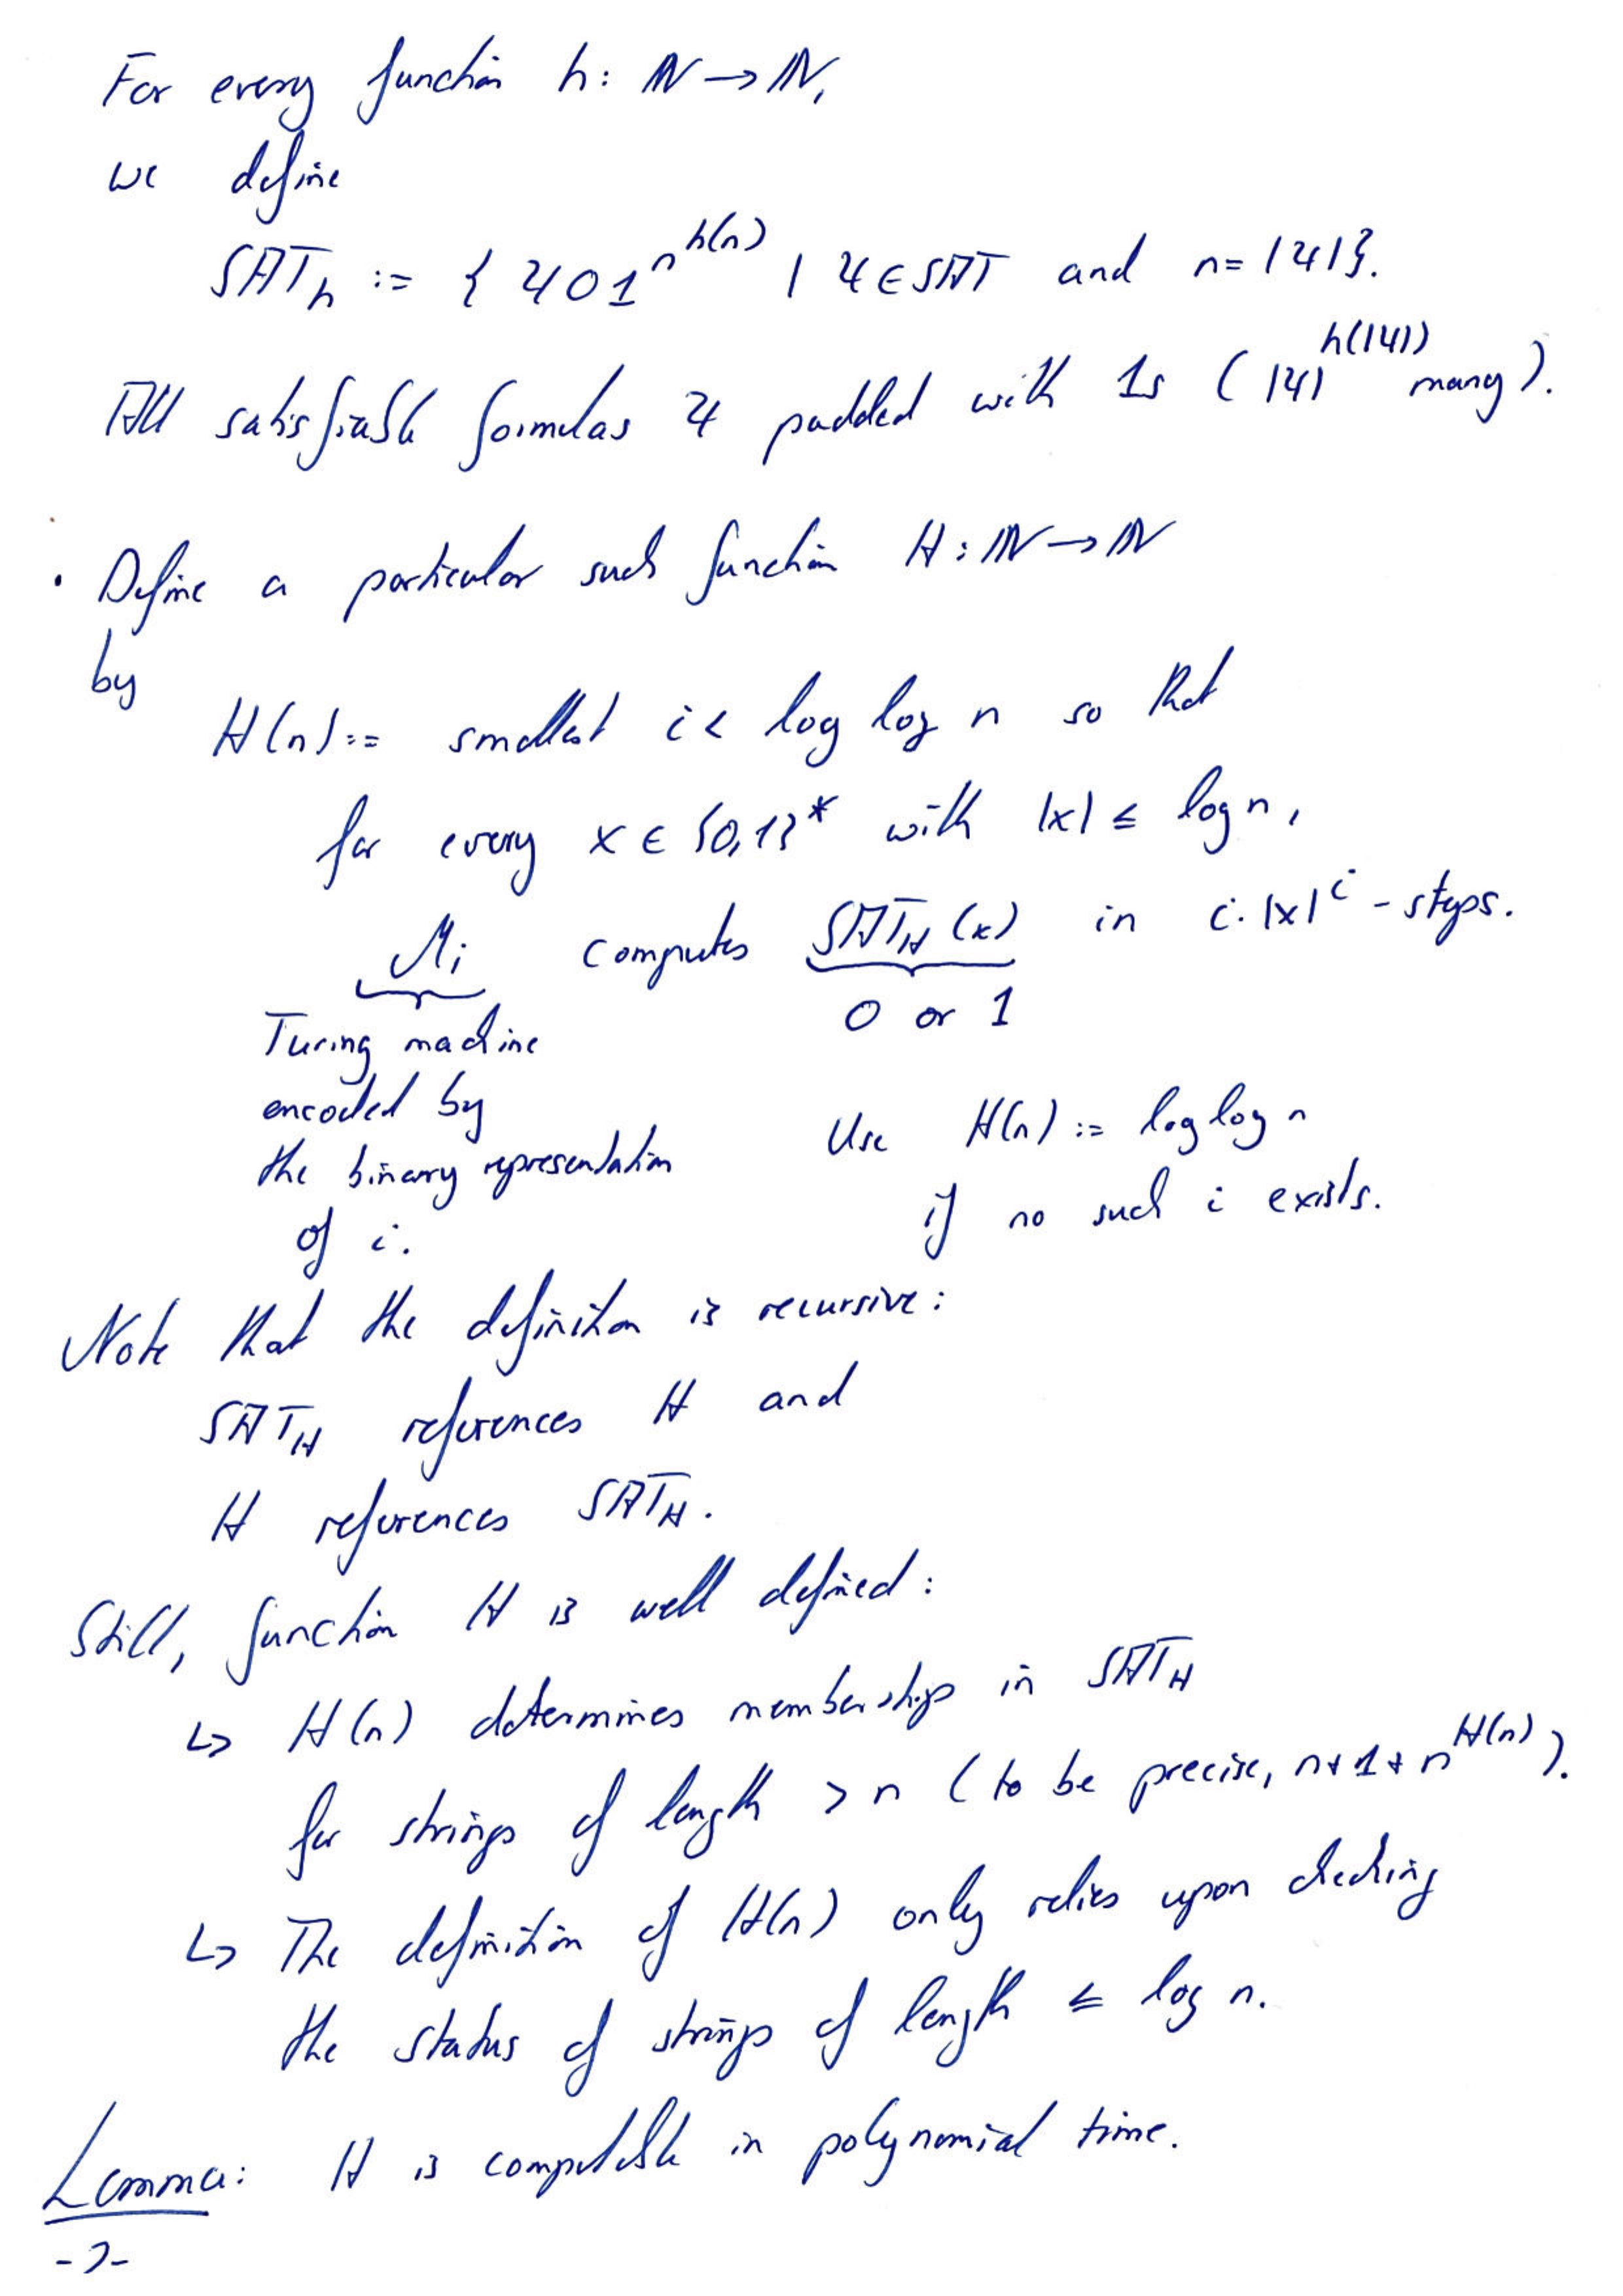 For every function h: ℕ → ℕ,
we define
SAT_h := { ψ 0 1^{n^{h(n)}} | ψ ∈ SAT and n = |ψ| }.
All satisfiable formulas ψ padded with 1s ( |ψ|^{h(|ψ|)} many ).
· Define a particular such function H: ℕ → ℕ
by
H(n) := smallest i < log log n so that
for every x ∈ {0,1}* with |x| ≤ log n,
M_i computes SAT_H(x) in i·|x|^i - steps.
0 or 1
Turing machine
encoded by
the binary representation
of i.
Use H(n) := log log n
if no such i exists.
Note that the definition is recursive:
SAT_H references H and
H references SAT_H.
Still, function H is well defined:
↳ H(n) determines membership in SAT_H
for strings of length > n (to be precise, n+1+n^{H(n)}).
↳ The definition of H(n) only relies upon checking
the status of strings of length ≤ log n.
Lemma: H is computable in polynomial time.
-2-